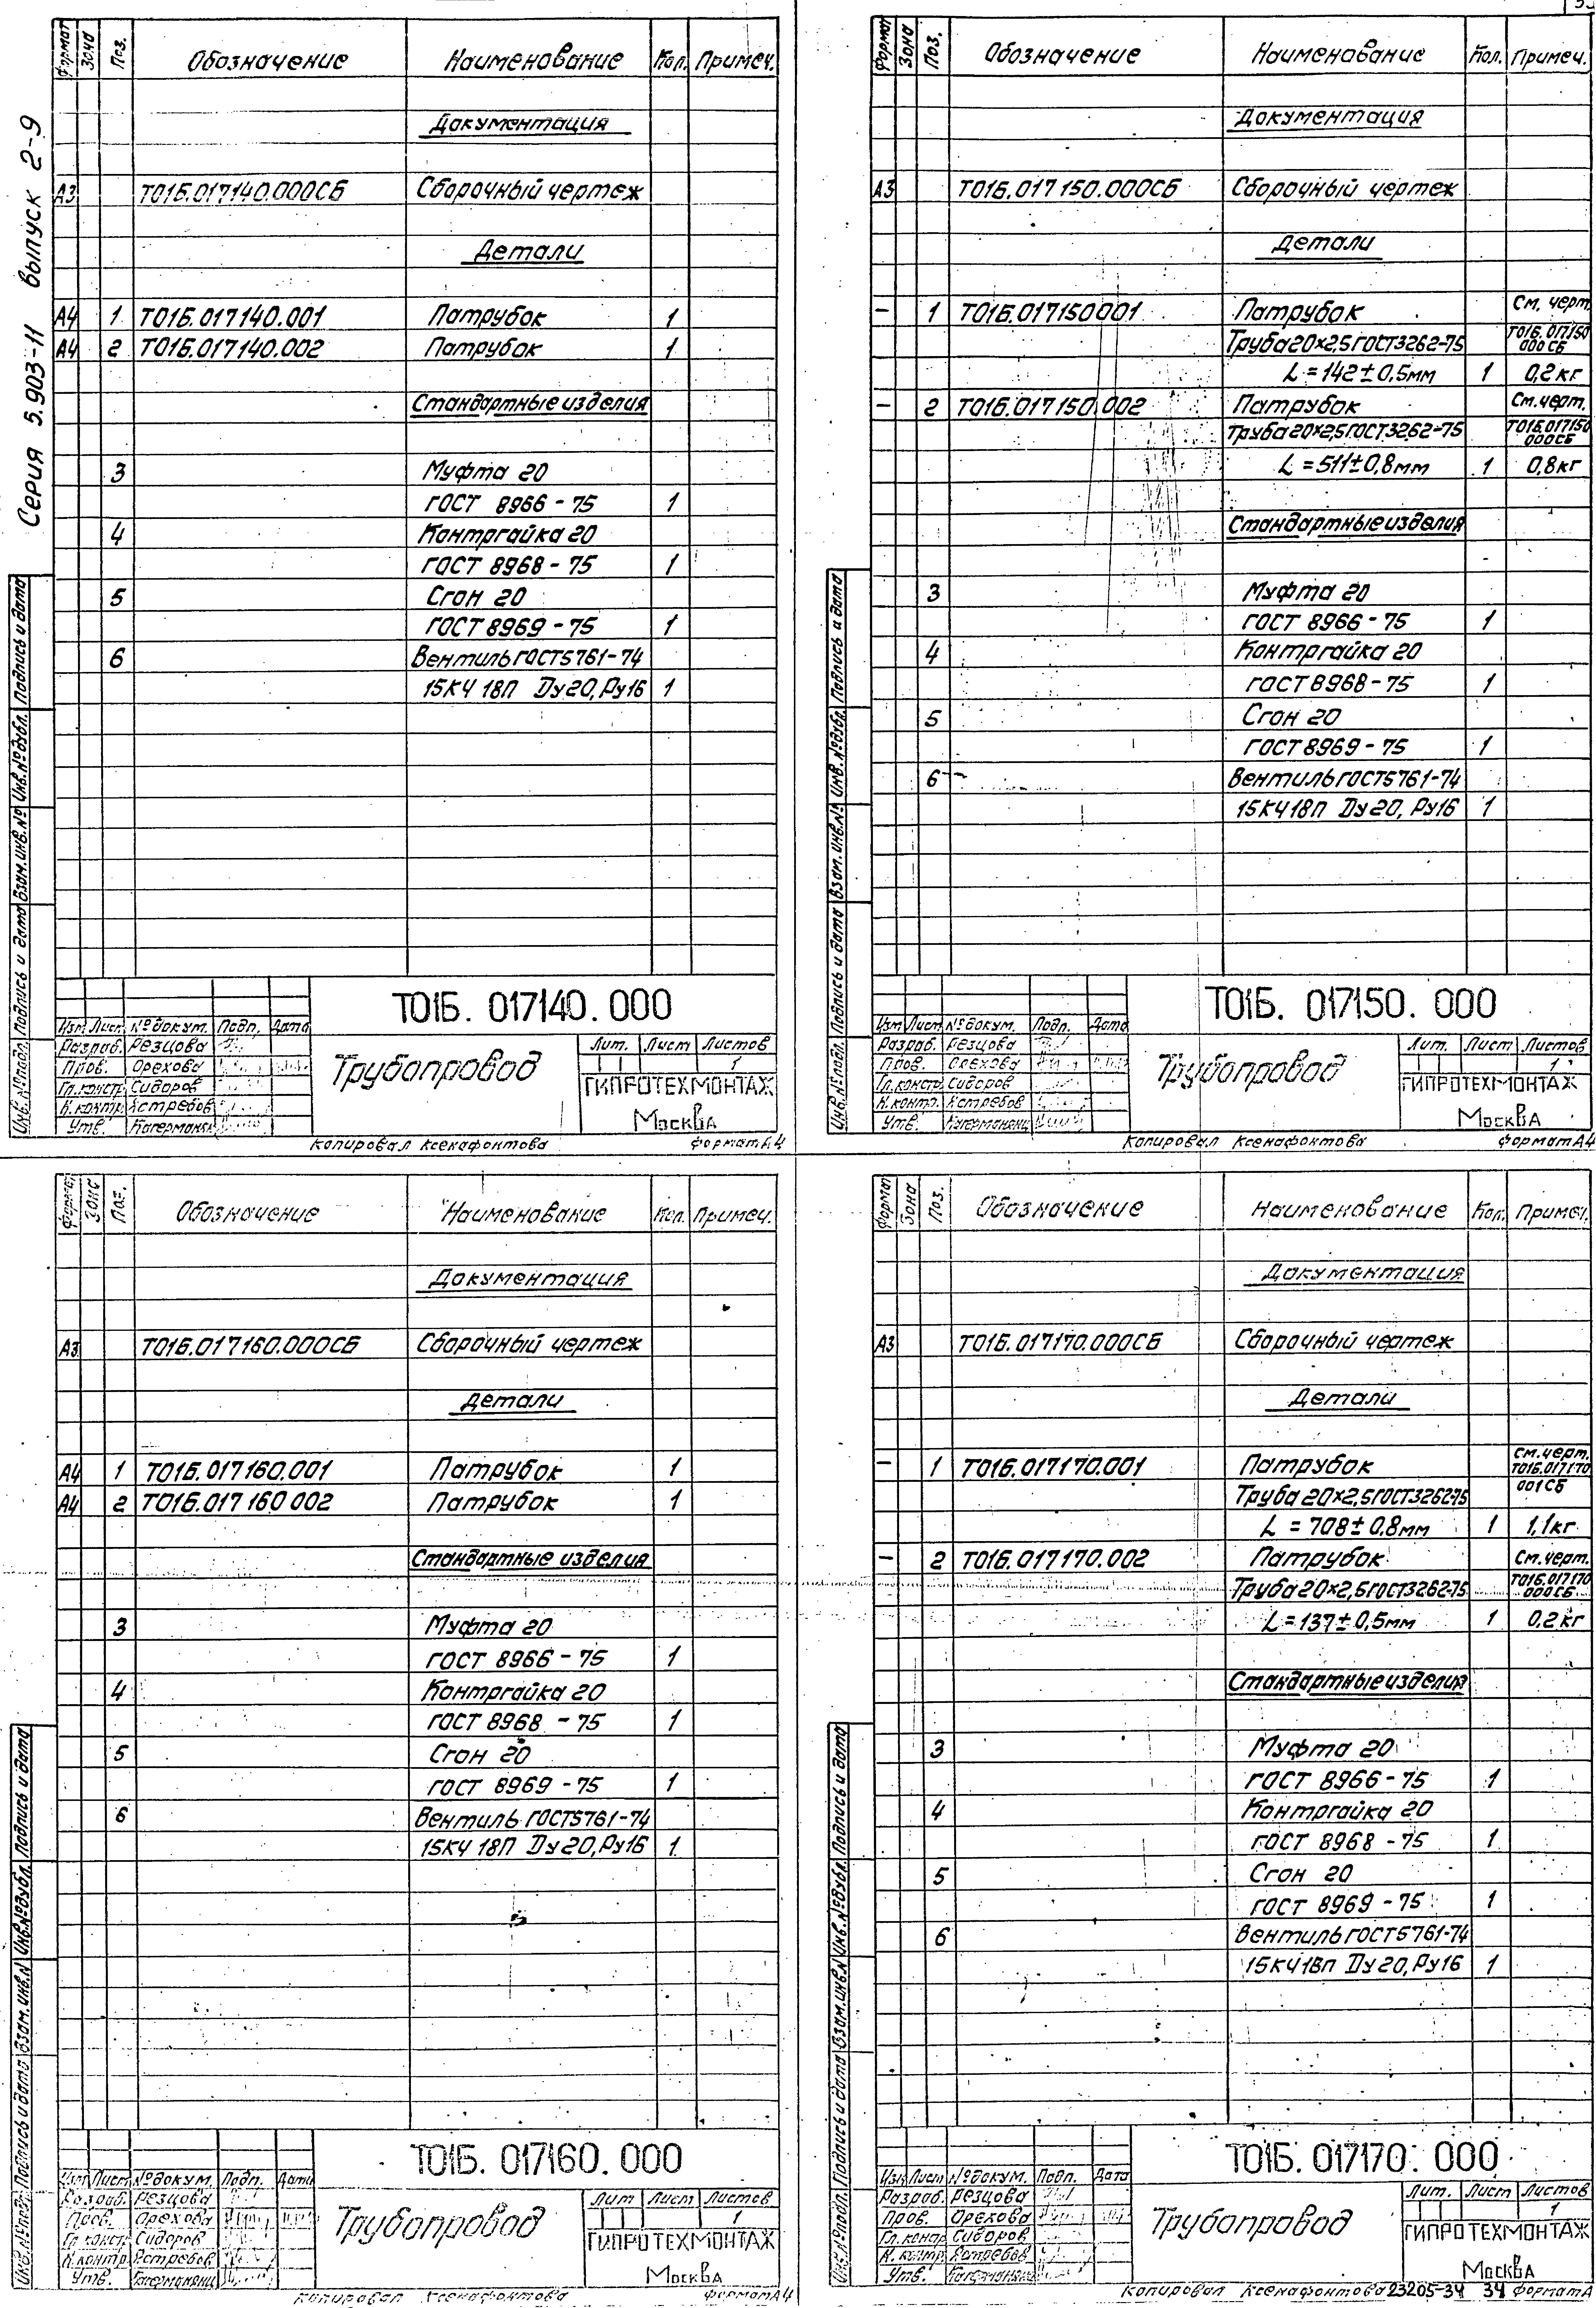 Серия 5.903-11 выпуск 2-9
Формат Зона Поз. Обозначение Наименование Кол. Примеч.
Документация
А3 Т01Б.017140.000СБ Сборочный чертеж
Детали
А4 1 Т01Б.017140.001 Патрубок 1
А4 2 Т01Б.017140.002 Патрубок 1
Стандартные изделия
3 Муфта 20
ГОСТ 8966-75 1
4 Контргайка 20
ГОСТ 8968-75 1
5 Сгон 20
ГОСТ 8969-75 1
6 Вентиль ГОСТ5761-74
15КЧ 18П Ду20, Ру16 1
Инв.№подл. Подпись и дата Взам.инв.№ Инв.№дубл. Подпись и дата
Т01Б. 017140. 000
Изм. Лист №докум. Подп. Дата
Разраб. Резцова
Пров. Орехова
Гл.констр. Сидоров
Н.контр. Ястребов
Утв.
Трубопровод
Лит. Лист Листов
1
ГИПРОТЕХМОНТАЖ
Москва
Копировал Ксенафонтова Формат А4
Формат Зона Поз. Обозначение Наименование Кол. Примеч.
Документация
А3 Т01Б.017150.000СБ Сборочный чертеж
Детали
— 1 Т01Б.017150001 Патрубок См. черт.
Труба 20×2,5 ГОСТ3262-75 Т01Б.017150
000СБ
L=142±0,5мм 1 0,2кг
— 2 Т01Б.017150.002 Патрубок См.черт.
Труба 20×2,5 ГОСТ3262-75 Т01Б.017150
000СБ
L=511±0,8мм 1 0,8кг
Стандартные изделия
3 Муфта 20
ГОСТ 8966-75 1
4 Контргайка 20
ГОСТ8968-75 1
5 Сгон 20
ГОСТ8969-75 1
6 Вентиль ГОСТ5761-74
15КЧ18П Ду20, Ру16 1
Инв.№подл. Подпись и дата Взам.инв.№ Инв.№дубл. Подпись и дата
Т01Б. 017150. 000
Изм Лист №докум. Подп. Дата
Разраб. Резцова
Пров. Орехова
Гл.констр. Сидоров
Н.контр. Ястребов
Утв.
Трубопровод
Лит. Лист Листов
1
ГИПРОТЕХМОНТАЖ
Москва
Копировал Ксенафонтова Формат А4
Формат Зона Поз. Обозначение Наименование Кол. Примеч.
Документация
А3 Т01Б.017160.000СБ Сборочный чертеж
Детали
А4 1 Т01Б.017160.001 Патрубок 1
А4 2 Т01Б.017160 002 Патрубок 1
Стандартные изделия
3 Муфта 20
ГОСТ 8966-75 1
4 Контргайка 20
ГОСТ 8968 -75 1
5 Сгон 20
ГОСТ 8969 -75 1
6 Вентиль ГОСТ5761-74
15КЧ 18П Ду20, Ру16 1
Инв.№подл. Подпись и дата Взам.инв.№ Инв.№дубл. Подпись и дата
Т01Б. 017160. 000
Изм Лист №докум. Подп. Дата
Разраб. Резцова
Пров. Орехова
Гл.констр. Сидоров
Н.контр. Ястребов
Утв.
Трубопровод
Лит Лист Листов
1
ГИПРОТЕХМОНТАЖ
Москва
Копировал Ксенафонтова Формат А4
Формат Зона Поз. Обозначение Наименование Кол. Примеч.
Документация
А3 Т01Б.017170.000СБ Сборочный чертеж
Детали
— 1 Т01Б.017170.001 Патрубок См.черт.
Т01Б.017170
Труба 20×2,5 ГОСТ3262-75 001СБ
L=708±0,8мм 1 1,1кг
— 2 Т01Б.017170.002 Патрубок См.черт.
Труба 20×2,5 ГОСТ3262-75 Т01Б.017170
000СБ
L=137±0,5мм 1 0,2кг
Стандартные изделия
3 Муфта 20
ГОСТ 8966-75 1
4 Контргайка 20
ГОСТ 8968-75 1
5 Сгон 20
ГОСТ 8969-75 1
6 Вентиль ГОСТ5761-74
15КЧ18П Ду20, Ру16 1
Инв.№подл. Подпись и дата Взам.инв.№ Инв.№дубл. Подпись и дата
Т01Б. 017170. 000
Изм Лист №докум. Подп. Дата
Разраб. Резцова
Пров. Орехова
Гл.констр Сидоров
Н.контр. Ястребов
Утв.
Трубопровод
Лит. Лист Листов
1
ГИПРОТЕХМОНТАЖ
Москва
Копировал Ксенафонтова 23205-34 34 Формат А